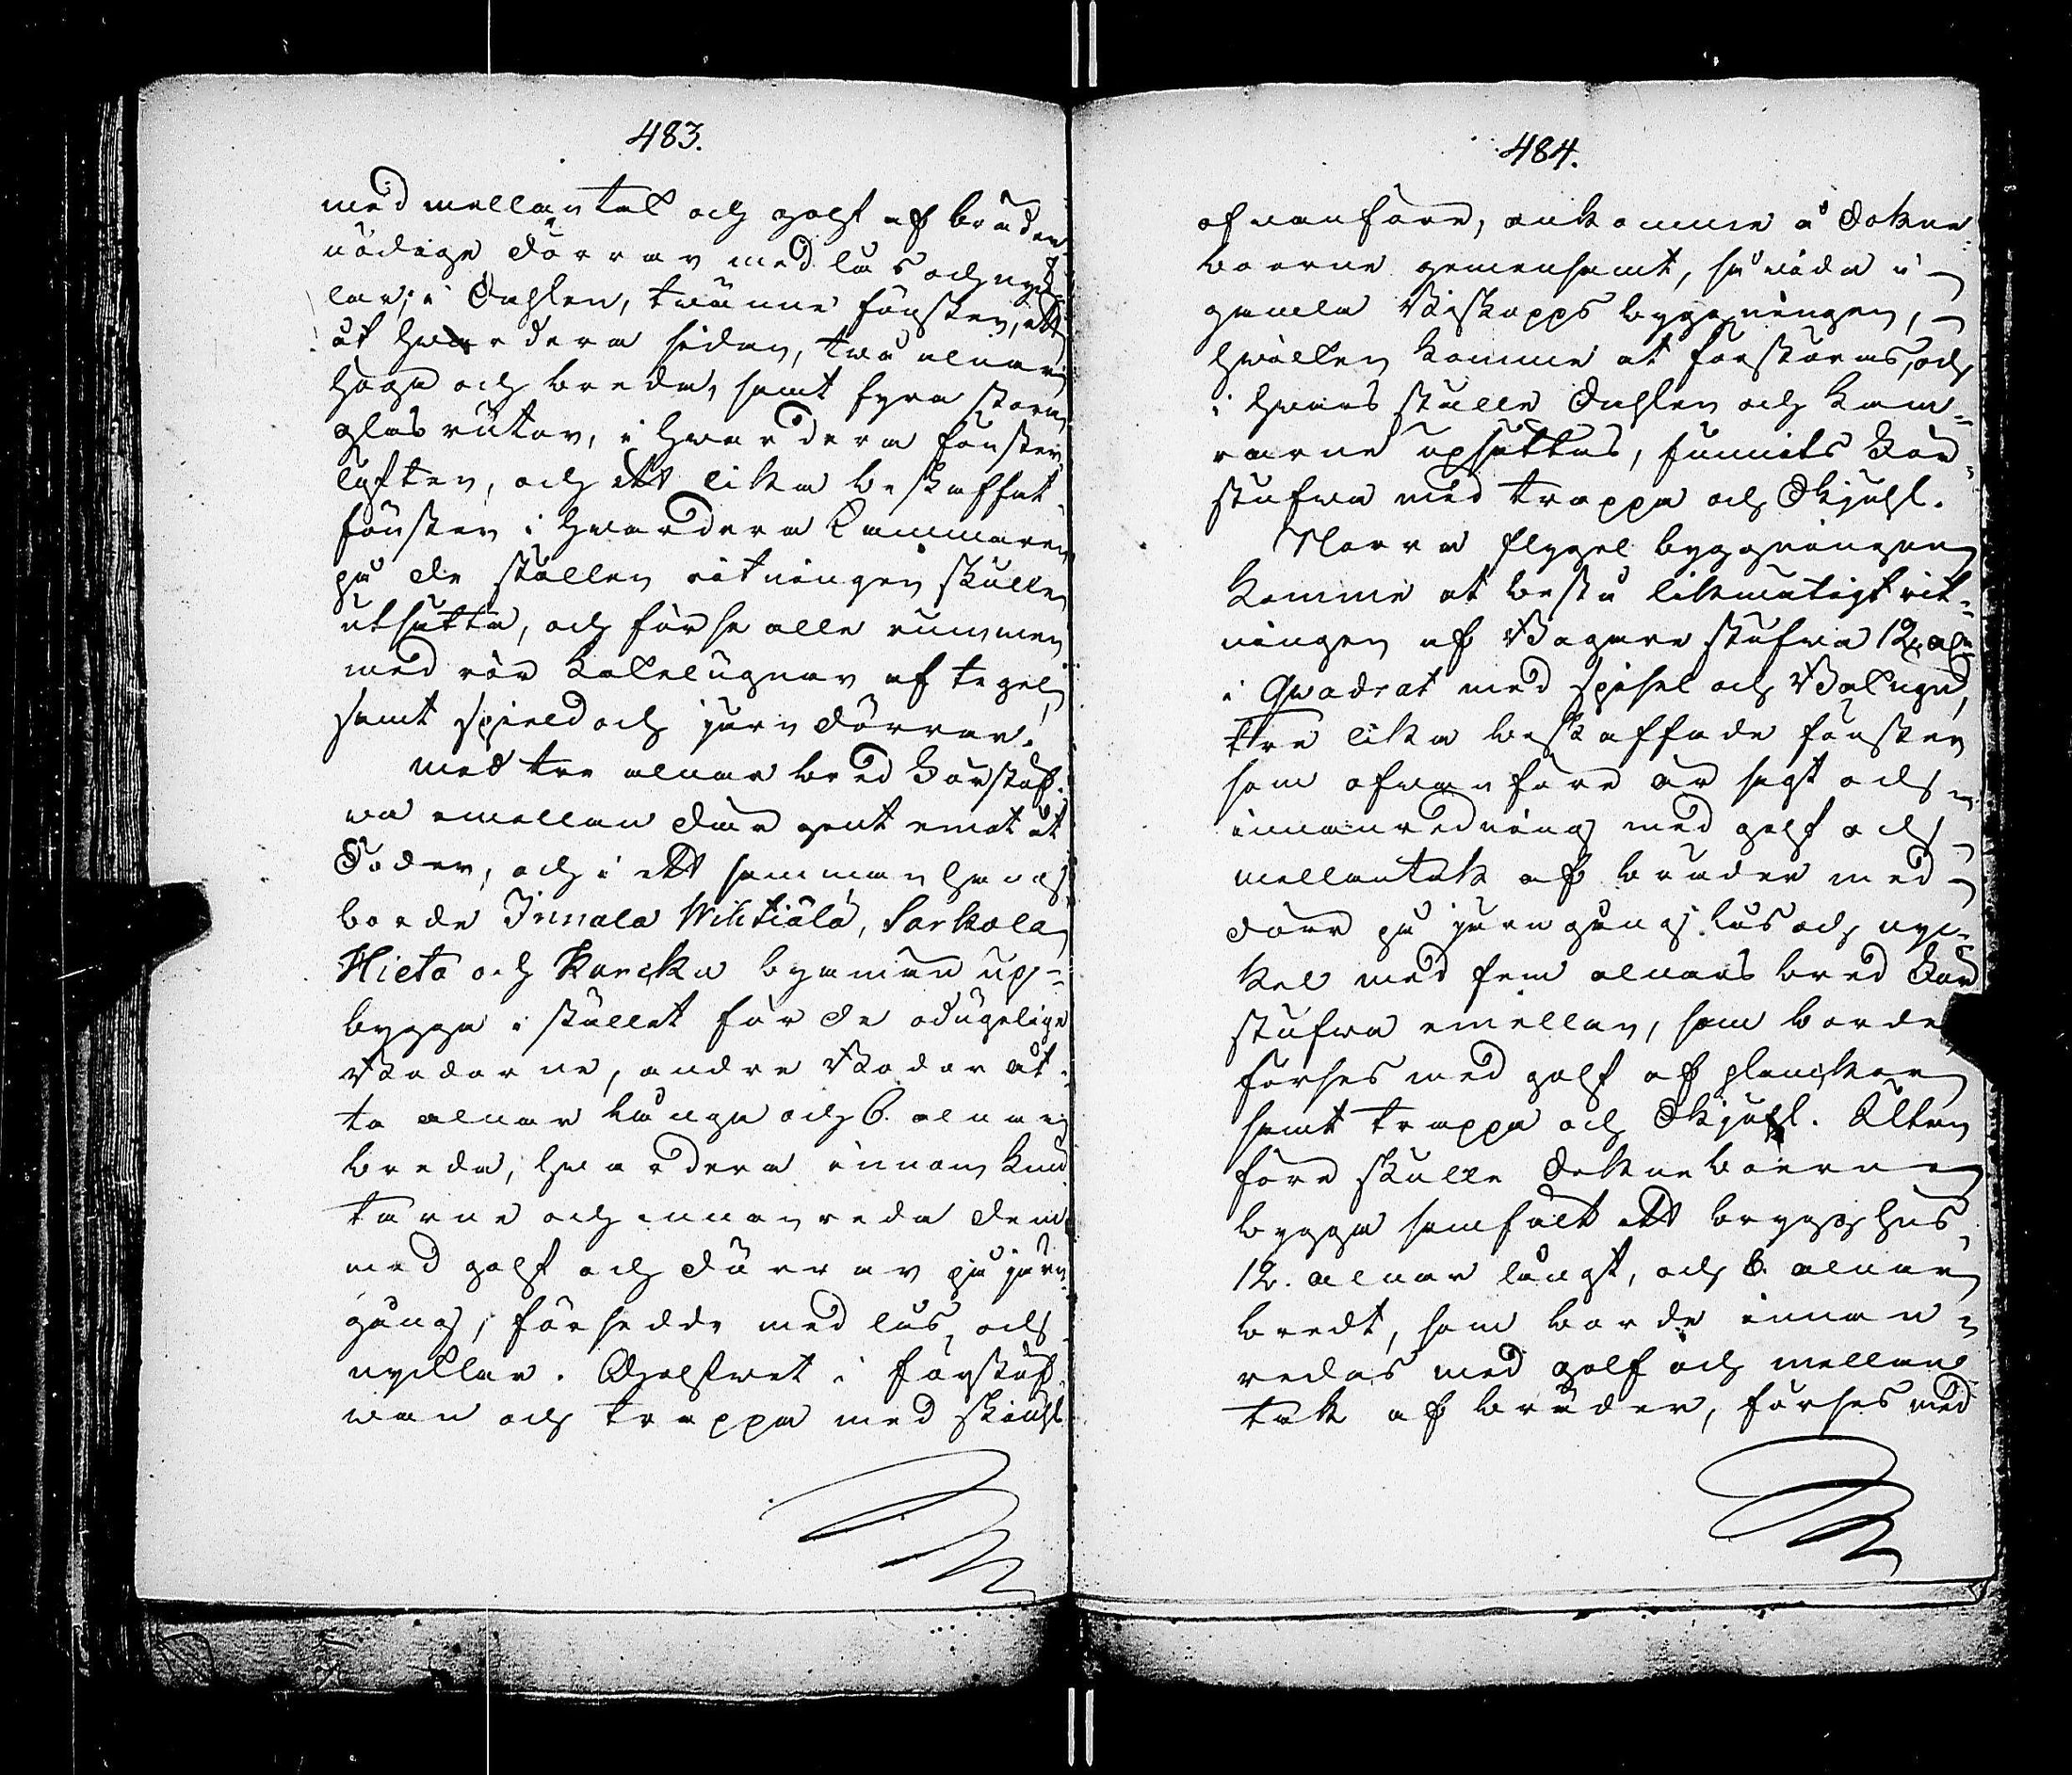 483.
med mellantak och golf af bräder
nödige dörrar med lås och nyck-
lar; i Sahlen, tvänne fönster, ett
åt hvardera sidan, två alnar
höga och breda, samt fyra stora
glas rutor, i hvardera fönster
lufter, och ett lika beskaffat
fönster i hvardera Cammaren
på de ställen ritningen skulle
utsätta, och förse alla rummen
med rör kakelugnar af tegel
samt spield och järn dörrar.
med tre alnar bred Förstuf-
va emellan där gent emot åt
Söder, och i ett sammanhang
borde Innala Wihtiälä, Sarkola
Hieta och Karcku byamän up-
bygga i stället för de odugelige
Bodarne, andre Bodar åt-
ta alnar långa och 6. alnar
breda, hvardera innom knu-
tarne och innanreda dem
med golf och dörrar på järn-
gång, försedde med lås och
nycklar. Golfvet i förstuf-
van och trappa med skiuhl
484.
ofvanföre, ankomme å Sokne
boerne gemensamt, så vida i
gamla Biskopps byggningen,
hvilken komme at förstöras, och
i hvars ställe Sahlen och kam-
rarne upsättas, funnits För-
stufva med trappa och Skjuhl.
Norra flygel byggningen
komme at bestå likmätigt rit-
ningen af Bagare stufva 12. aln:
i Quadrat med spisel och Bakugn,
tre lika beskaffade fönster
som ofvanföre är sagt och
innanredning med golf och
mellantak af bräder med
dörr på järngång lås och nyc-
kel med fem alnars bred För
stufva emellan, som borde
förses med golf af planckor
samt trappa och Skjuhl. Utan
före skulle Sokneboerne
bygga samfält ett brygghus
12. alnar långt, och 6. alnar
bredt, som borde innan-
redas med golf och mellan
tak af bräder, förses med